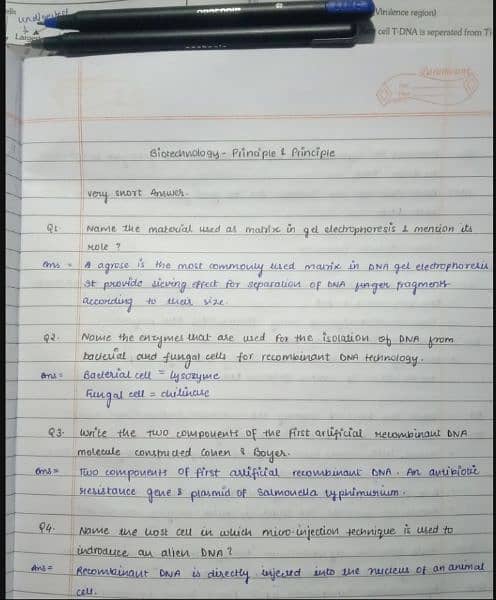 undigested
Virulence region)
cell T-DNA is seperated from Ti
Larger
Biotechnology - Principle & Principle
very short Answer.
Q1 Name the material used as matrix in gel electrophoresis & mention its
role ?
Ans = A agrose is the most commonly used matrix in DNA gel electrophoresis
It provide sieving effect for separation of DNA finger fragments
according to their size.
Q2. Name the enzymes that are used for the isolation of DNA from
bacterial and fungal cells for recombinant DNA technology.
Ans = Bacterial cell = lysozyme
Fungal cell = chitinase
Q3. Write the two components of the first artificial recombinant DNA
molecule constructed Cohen & Boyer.
Ans = Two components of first artificial recombinant DNA. An antibiotic
resistance gene & plasmid of Salmonella typhimurium.
Q4. Name the host cell in which micro-injection technique is used to
indroduce an alien DNA ?
Ans = Recombinant DNA is directly injected into the nucleus of an animal
cell.